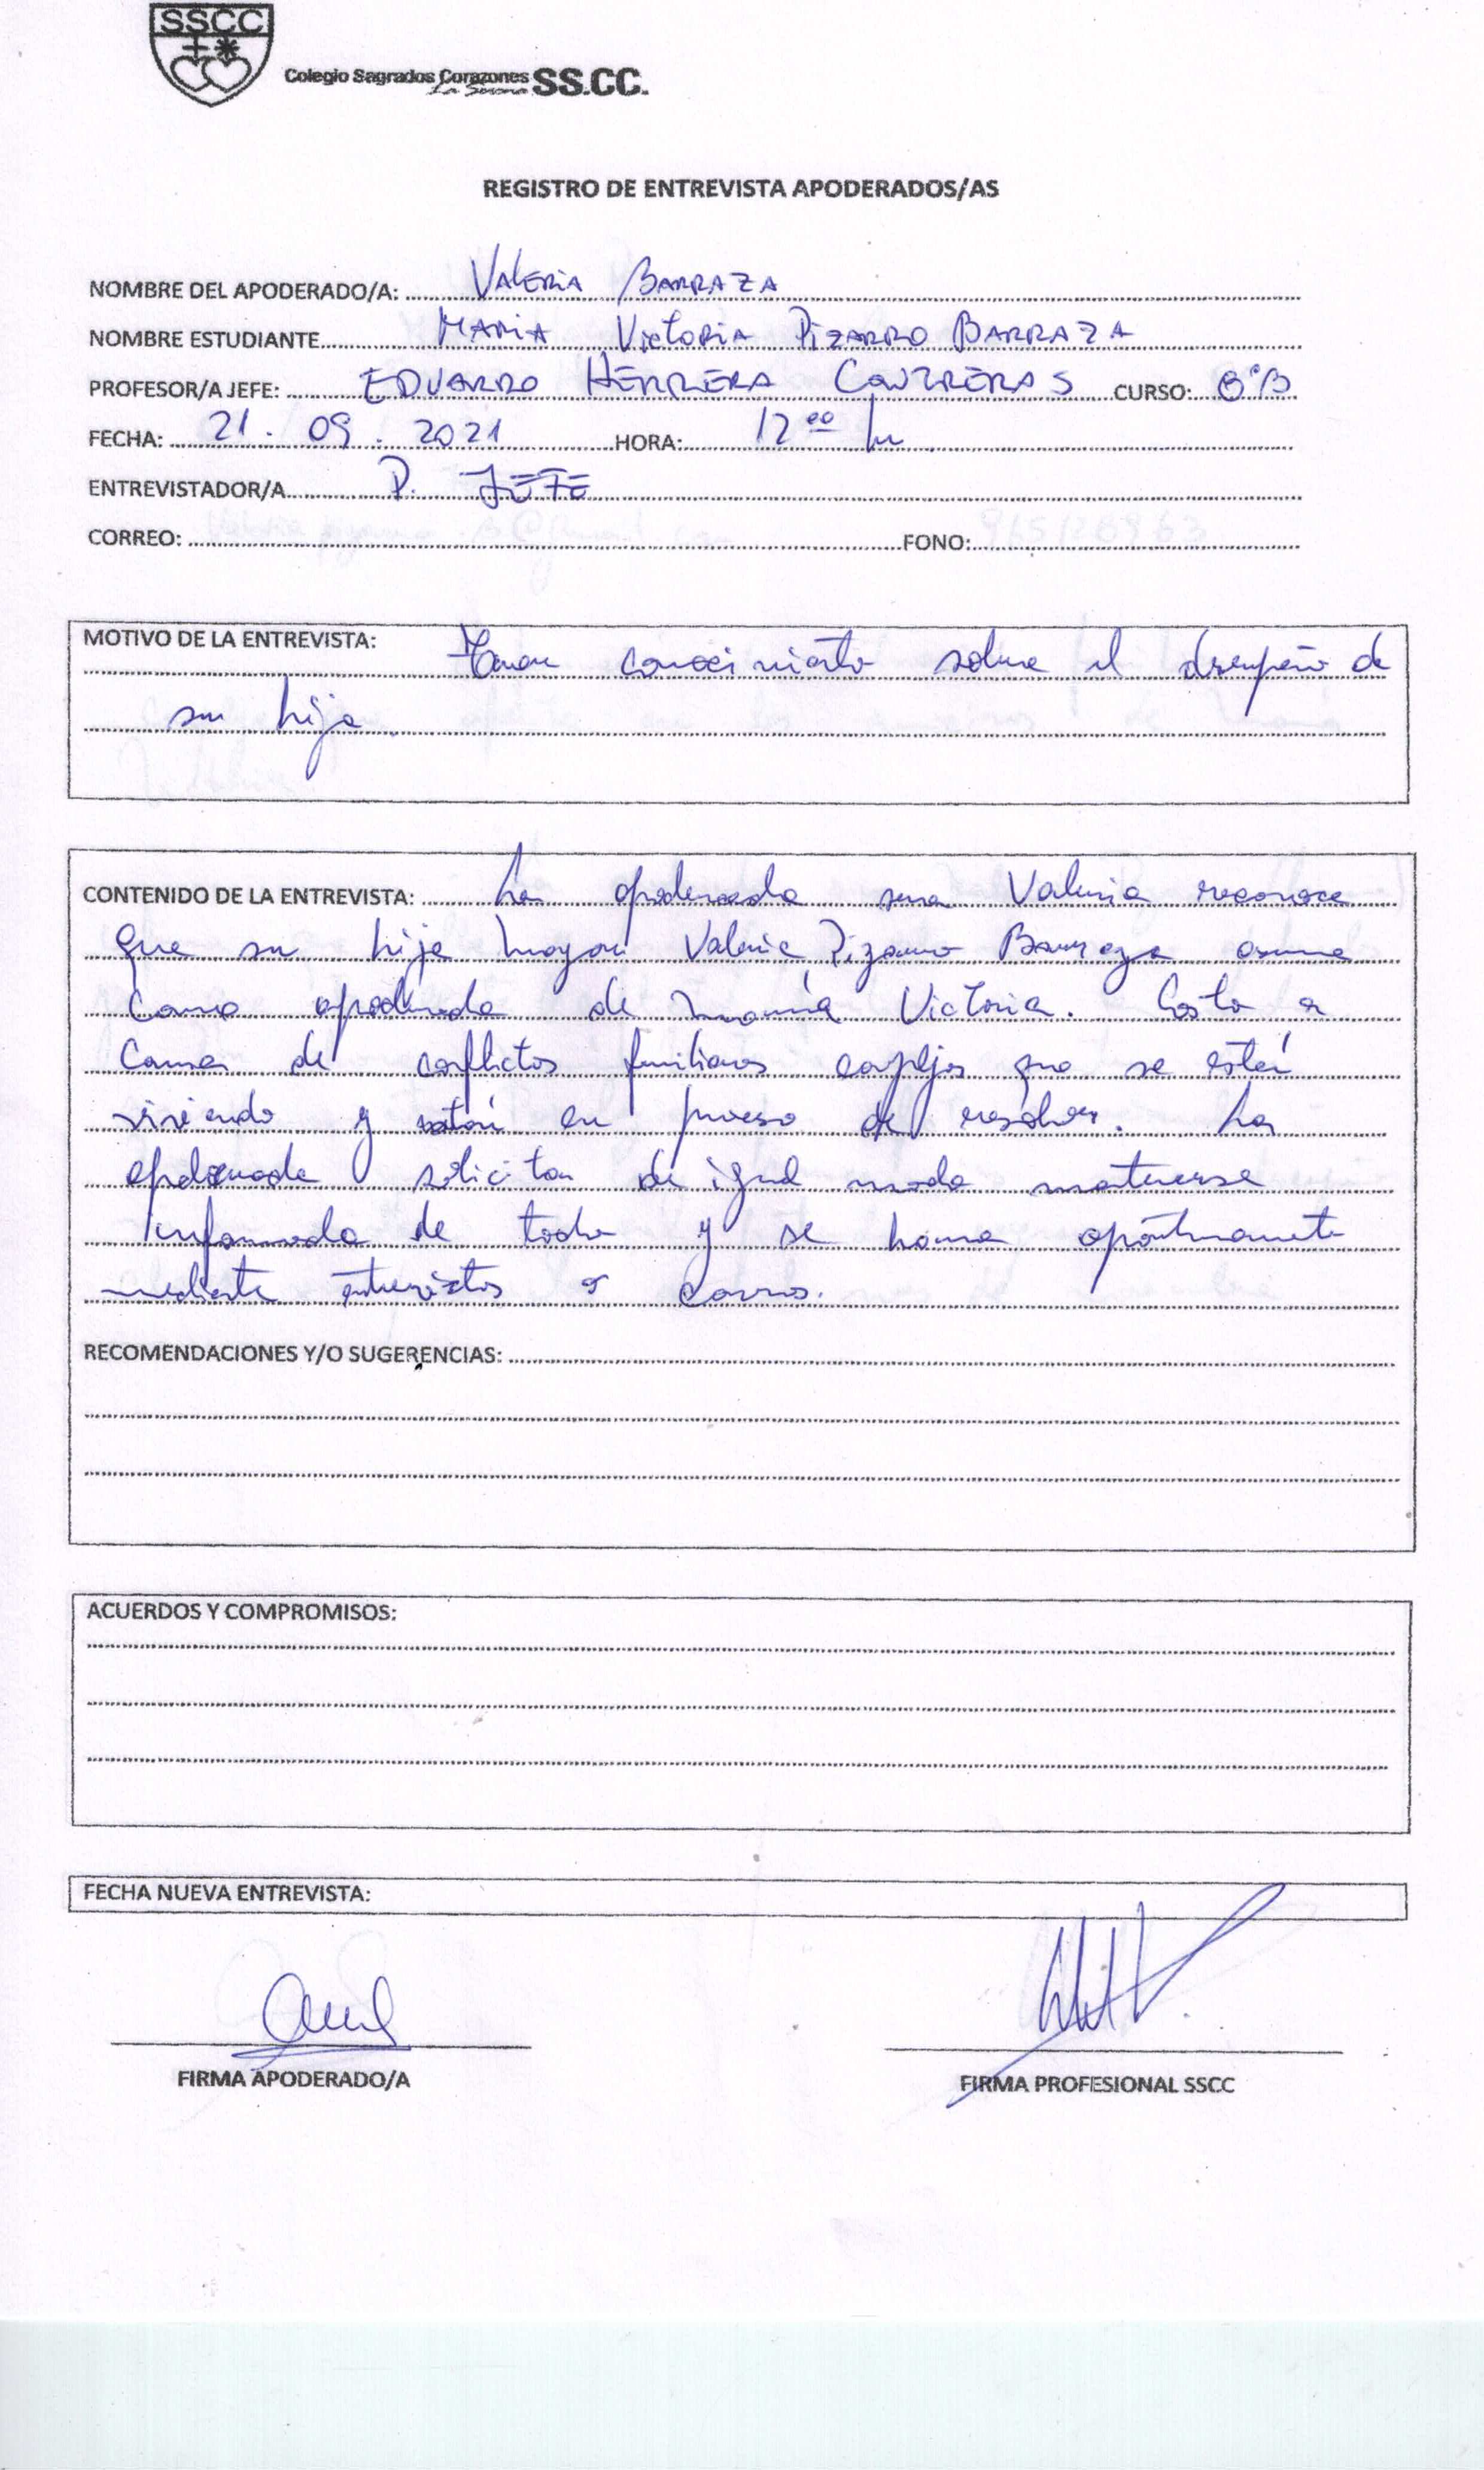 SSCC
Colegio Sagrados Corazones SS.CC.
La Serena
REGISTRO DE ENTREVISTA APODERADOS/AS
NOMBRE DEL APODERADO/A: Valeria Barraza
NOMBRE ESTUDIANTE Maria Victoria Pizarro Barraza
PROFESOR/A JEFE: EDUARDO HERRERA CONTRERAS CURSO: 8°B
FECHA: 21. 09. 2021 HORA: 12 00 hr
ENTREVISTADOR/A P. JEFE
CORREO: FONO:
MOTIVO DE LA ENTREVISTA: Tomar conocimiento sobre el desempeño de
su hija
CONTENIDO DE LA ENTREVISTA: La apoderada sra Valeria reconoce
que su hija mayor Valeria Pizarro Barraza asume
como apoderada de María Victoria. Esto a
causa de conflictos familiares complejos que se están
viviendo y están en proceso de resolver. La
apoderada solicita de igual modo mantenerse
informada de todo y se hara oportunamente
mediante entrevistas o correos.
RECOMENDACIONES Y/O SUGERENCIAS:
ACUERDOS Y COMPROMISOS:
FECHA NUEVA ENTREVISTA:
FIRMA APODERADO/A FIRMA PROFESIONAL SSCC